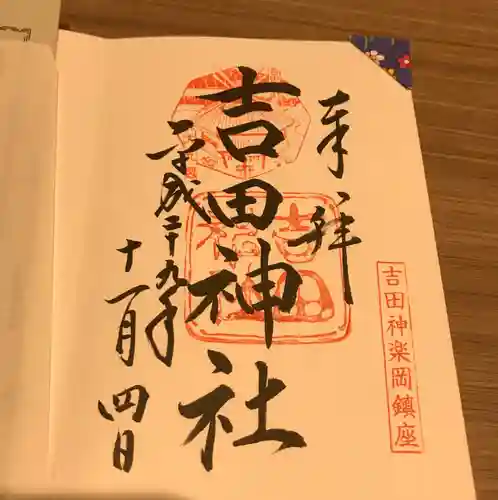 奉拝
吉田神楽岡鎮座
吉田神社
平成二十九年
十一月四日